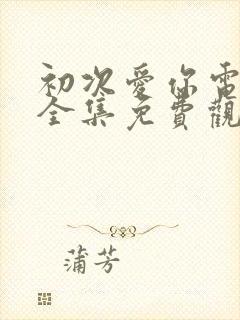 初次愛你電
全集免費觀
蒲芳